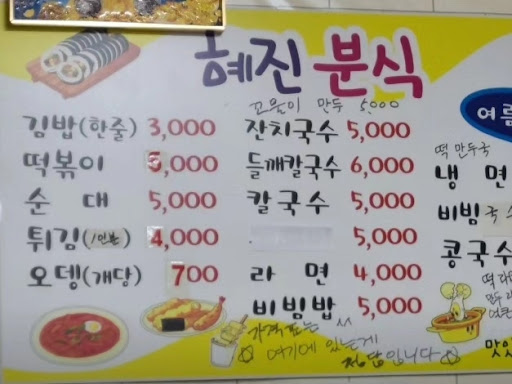 혜진 분식
꼬물이 만두 5,000
김밥(한줄) 3,000
떡볶이 5,000
순대 5,000
튀김(1인분) 4,000
오뎅(개당) 700
잔치국수 5,000
들깨칼국수 6,000
칼국수 5,000
5,000
라면 4,000
비빔밥 5,000
여름
떡만두국
냉면
비빔국수
콩국수
떡라
만두
맛있
여기에 있는게
정답입니다